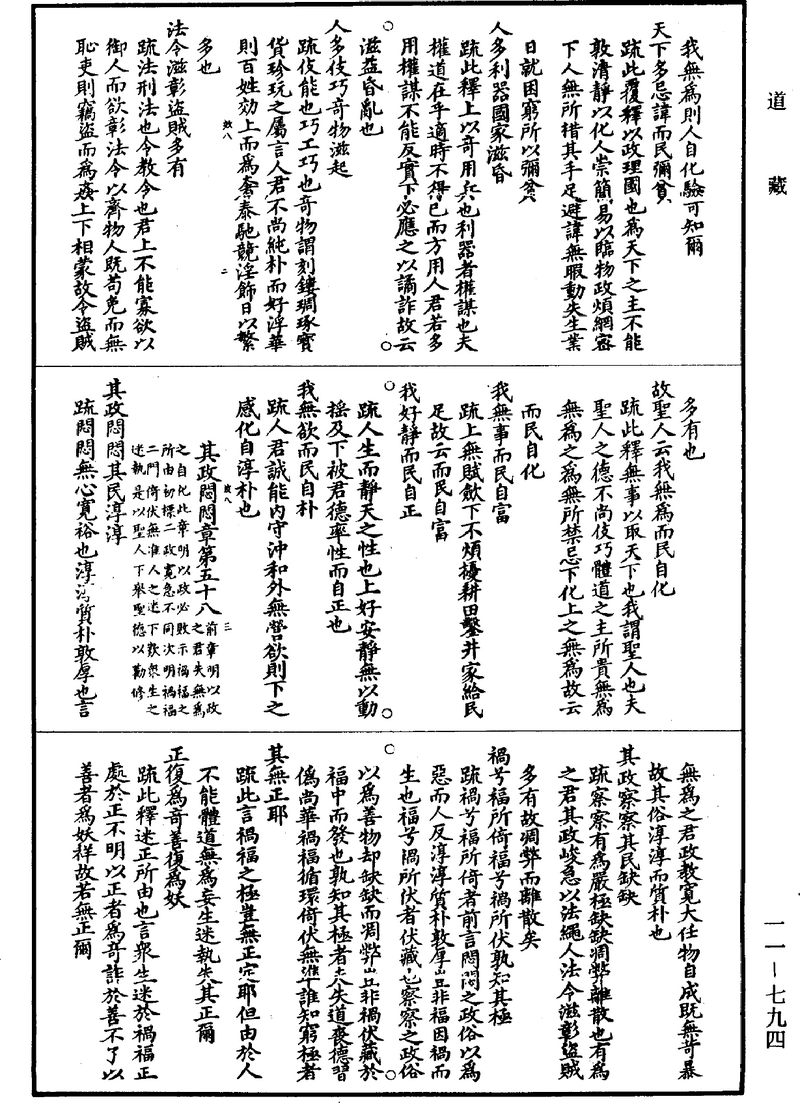 道藏
我無為則人自化驗可知爾
天下多忌諱而民彌貧
疏此覆釋以政理國也為天下之主不能
敦清靜以化人崇簡易以臨物政煩網密
下人無所措其手足避諱無暇動失生業
日就困窮所以彌貧
人多利器國家滋昏
疏此釋上以奇用兵也利器者權謀也夫
權道在乎適時不得已而方用人君若多
用權謀不能反實下必應之以譎詐故云
滋益昏亂也
人多伎巧奇物滋起
疏伎能也巧工巧也奇物謂刻鏤琱琢寶
貨珍玩之屬言人君不尚純朴而好浮華
則百姓効上而為奢泰馳競淫飾日以繁
多也
法令滋彰盜賊多有
疏法刑法也令教令也君上不能寡欲以
御人而欲彰法令以齊物人既苟免而無
恥吏則竊盜而為姦上下相蒙故令盜賊
多有也
故聖人云我無為而民自化
疏此釋無事以取天下也我謂聖人也夫
聖人之德不尚伎巧體道之主所貴無為
無為之為無所禁忌下化上之無為故云
而民自化
我無事而民自富
疏上無賦斂下不煩擾耕田鑿井家給民
足故云而民自富
我好靜而民自正
疏人生而靜天之性也上好安靜無以動
搖及下被君德率性而自正也
我無欲而民自朴
疏人君誠能內守沖和外無營欲則下之
感化自淳朴也
其政悶悶章第五十八
前章明以政之君失無為
之自化此章明以政必敗示禍福之
所由初標二政寬急不同次明禍福
二門倚伏無准人之迷下歎衆生之
迷執是以聖人下舉聖德以勸修
其政悶悶其民淳淳
疏悶悶無心寬裕也淳淳質朴敦厚也言
無為之君政教寬大任物自成既無苛暴
故其俗淳淳而質朴也
其政察察其民缺缺
疏察察有為嚴極缺缺凋弊離散也有為
之君其政峻急以法繩人法令滋彰盜賊
多有故凋弊而離散矣
禍兮福所倚福兮禍所伏孰知其極
疏禍兮福所倚者前言悶悶之政俗以為
惡而人反淳淳質朴敦厚豈非福因禍而
生也福兮禍所伏者伏藏也察察之政俗
以為善物却缺缺而凋弊豈非禍伏藏於
福中而發也孰知其極者夫失道喪德習
偽尚華禍福循環倚伏無準誰知窮極者
其無正耶
疏此言禍福之極豈無正定耶但由於人
不能體道無為妄生迷執失其正爾
正復為奇善復為妖
疏此釋迷正所由也言衆生迷於禍福正
處於正不明以正者為奇詐於善不了以
善者為妖祥故若無正爾
一一—七九四